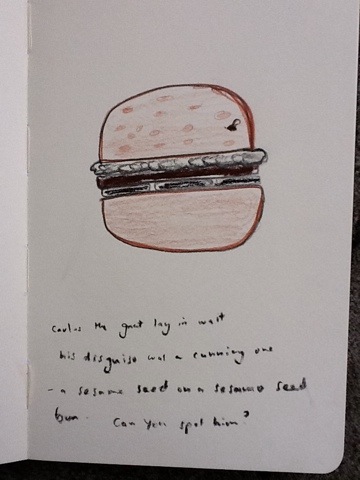 Carlos the gnat lay in wait
his disguise was a cunning one
- a sesame seed on a sesame seed
bun. Can you spot him?